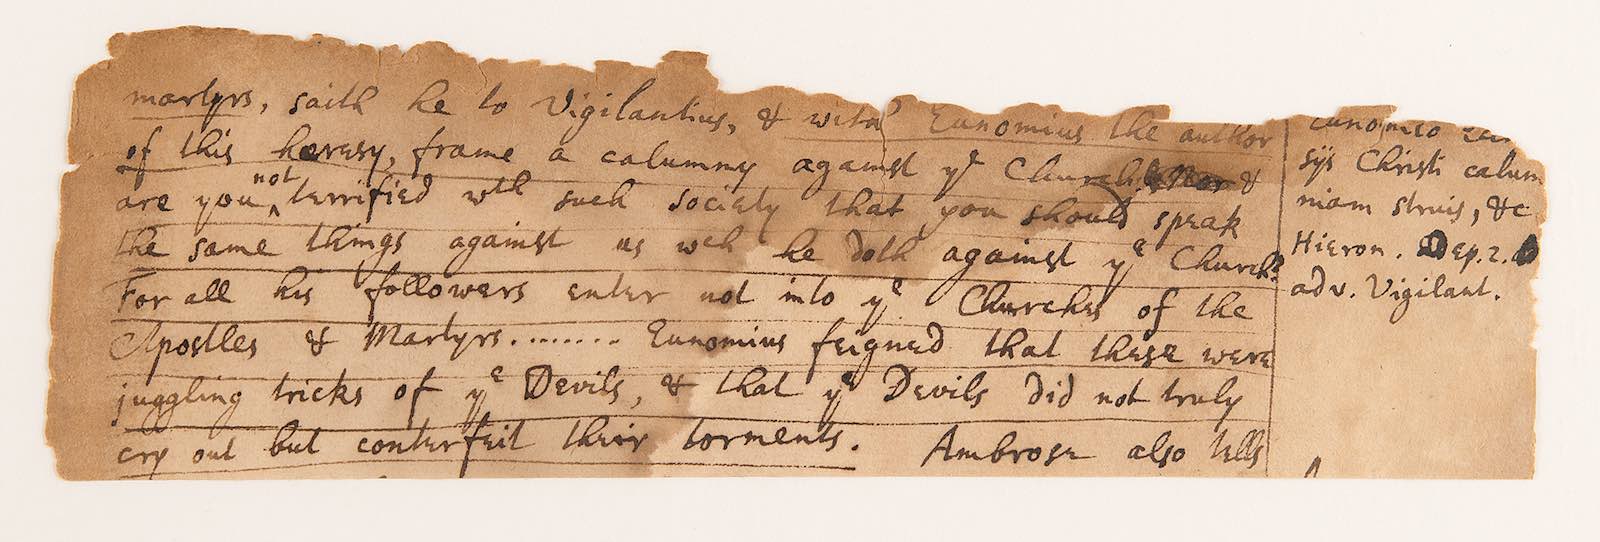 martyrs, saith he to Vigilantius, & with Eunomius the author
of this heresy, frame a calumny against yᵉ Church &
are you not terrified wth such society that you should speak
the same things against us wch he doth against yᵉ Church?
For all his followers enter not into yᵉ Churches of the
Apostles & Martyrs......... Eunomius feigned that these were
juggling tricks of yᵉ Devils, & that yᵉ Devils did not truly
cry out but conterfeit their torments. Ambrose also tells
Eunomio
sijs Christi calum
niam struis, &c
Hieron. ep. 2.
adv. Vigilant.